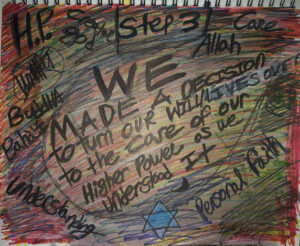 H.P.
Step 3
Care
Allah
WE
MADE A DECISION
to turn our WILL/LIVES OVER
to the Care of our
Higher Power, as we
Understood It
Buddha
Understanding
Personal Faith